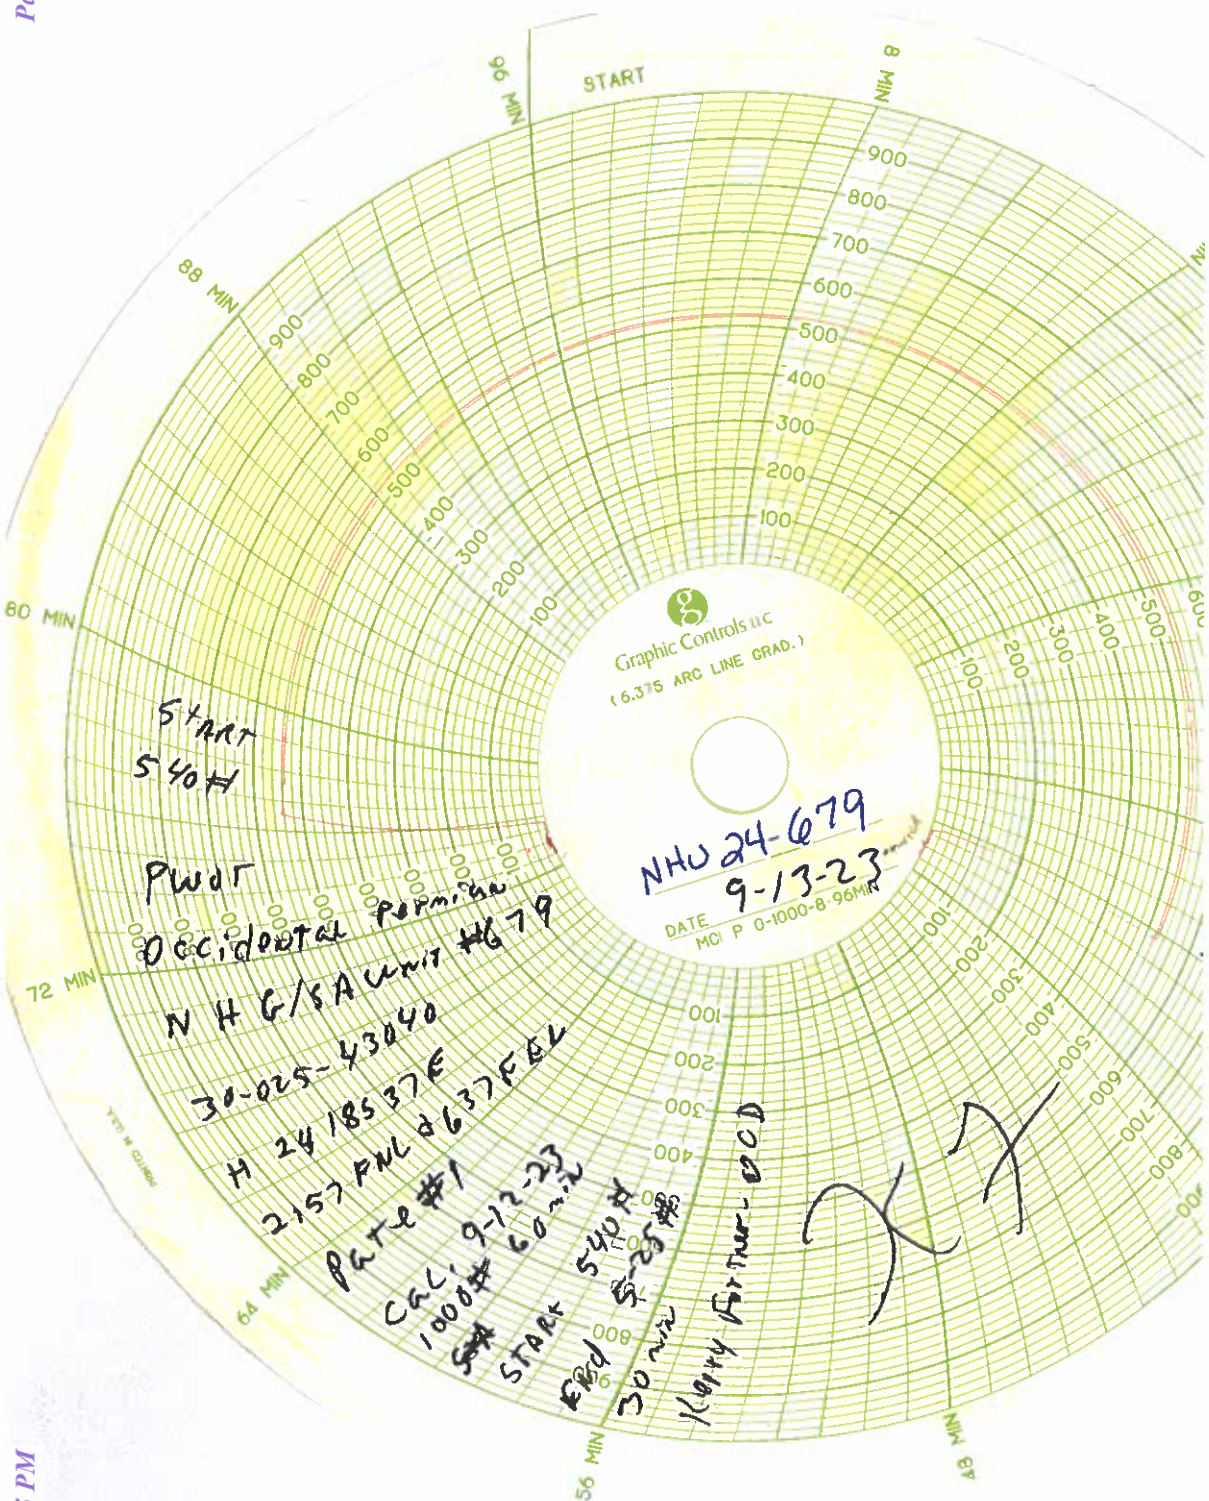 START
96 MIN
8 MIN
88 MIN
80 MIN
72 MIN
64 MIN
56 MIN
48 MIN
900
800
700
600
500
400
300
200
100
900
800
700
600
500
400
300
200
100
600
500
400
300
200
100
100
200
300
400
500
600
700
800
900
100
200
300
400
800
100
g
Graphic Controls LLC
(6.375 ARC LINE GRAD.)
NHU 24-679
DATE 9-13-23
MC P 0-1000-8-96MIN
PRINTED IN U.S.A.
START
540#
PWOT
Occidental Permian
N H G/SA Unit #679
30-025-43040
H 24 18S 37E
2157 FNL & 637 FEL
Cal. 9-12-23
1000# 60 min
START 540#
End 525#
30 min
PM